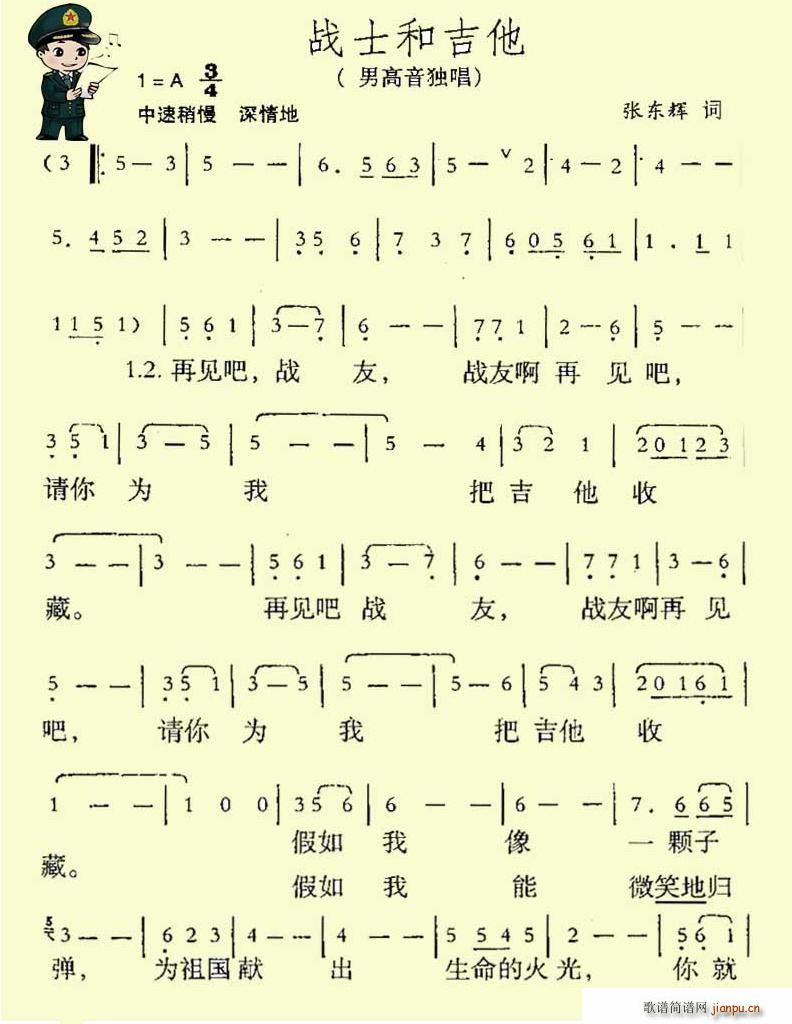 战士和吉他
(男高音独唱)
1=A 3/4
中速稍慢 深情地
张东辉 词
(3 ‖: 5—3 | 5—— | 6. 563 | 5—ⱽ | 2 | 4—2 | 4——
5. 452 | 3—— | 35 6 | 7 37 | 6 05 61 | 1. 11
1151) | 561 | 3—7 | 6—— | 771 | 2—6 | 5——
1.2.再见吧,战 友, 战友啊 再 见 吧,
351 | 3—5 | 5—— | 5—4 | 32 1 | 20123
请你 为 我 把 吉 他 收
3—— | 3—— | 561 | 3—7 | 6—— | 771 | 3—6 |
藏。 再见吧 战 友, 战友啊再 见
5—— | 351 | 3—5 | 5—— | 5—6 | 543 | 20161 |
吧, 请你 为 我 把 吉他 收
1—— | 100 | 356 | 6—— | 6—— | 7. 6 65 |
假如 我 像 一 颗子
藏。
假如 我 能 微笑地归
3—— | 6 23 | 4—— | 4—— | 5 545 | 2—— | 5 61 |
弹, 为祖国献 出 生命的火光, 你 就
歌谱简谱网 jianpu.cn